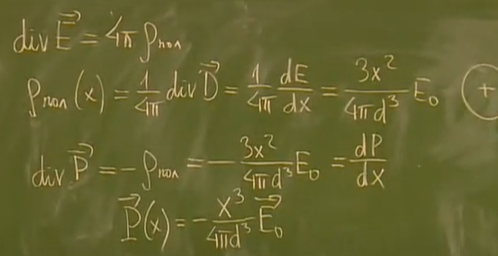 div E⃗ = 4π ρпол
ρпол(x) = 1/4π div D⃗ = 1/4π dE/dx = 3x²/4πd³ E₀ (+
div P⃗ = − ρпол = − 3x²/4πd³ E₀ = dP/dx
P⃗(x) = − x³/4πd³ E⃗₀